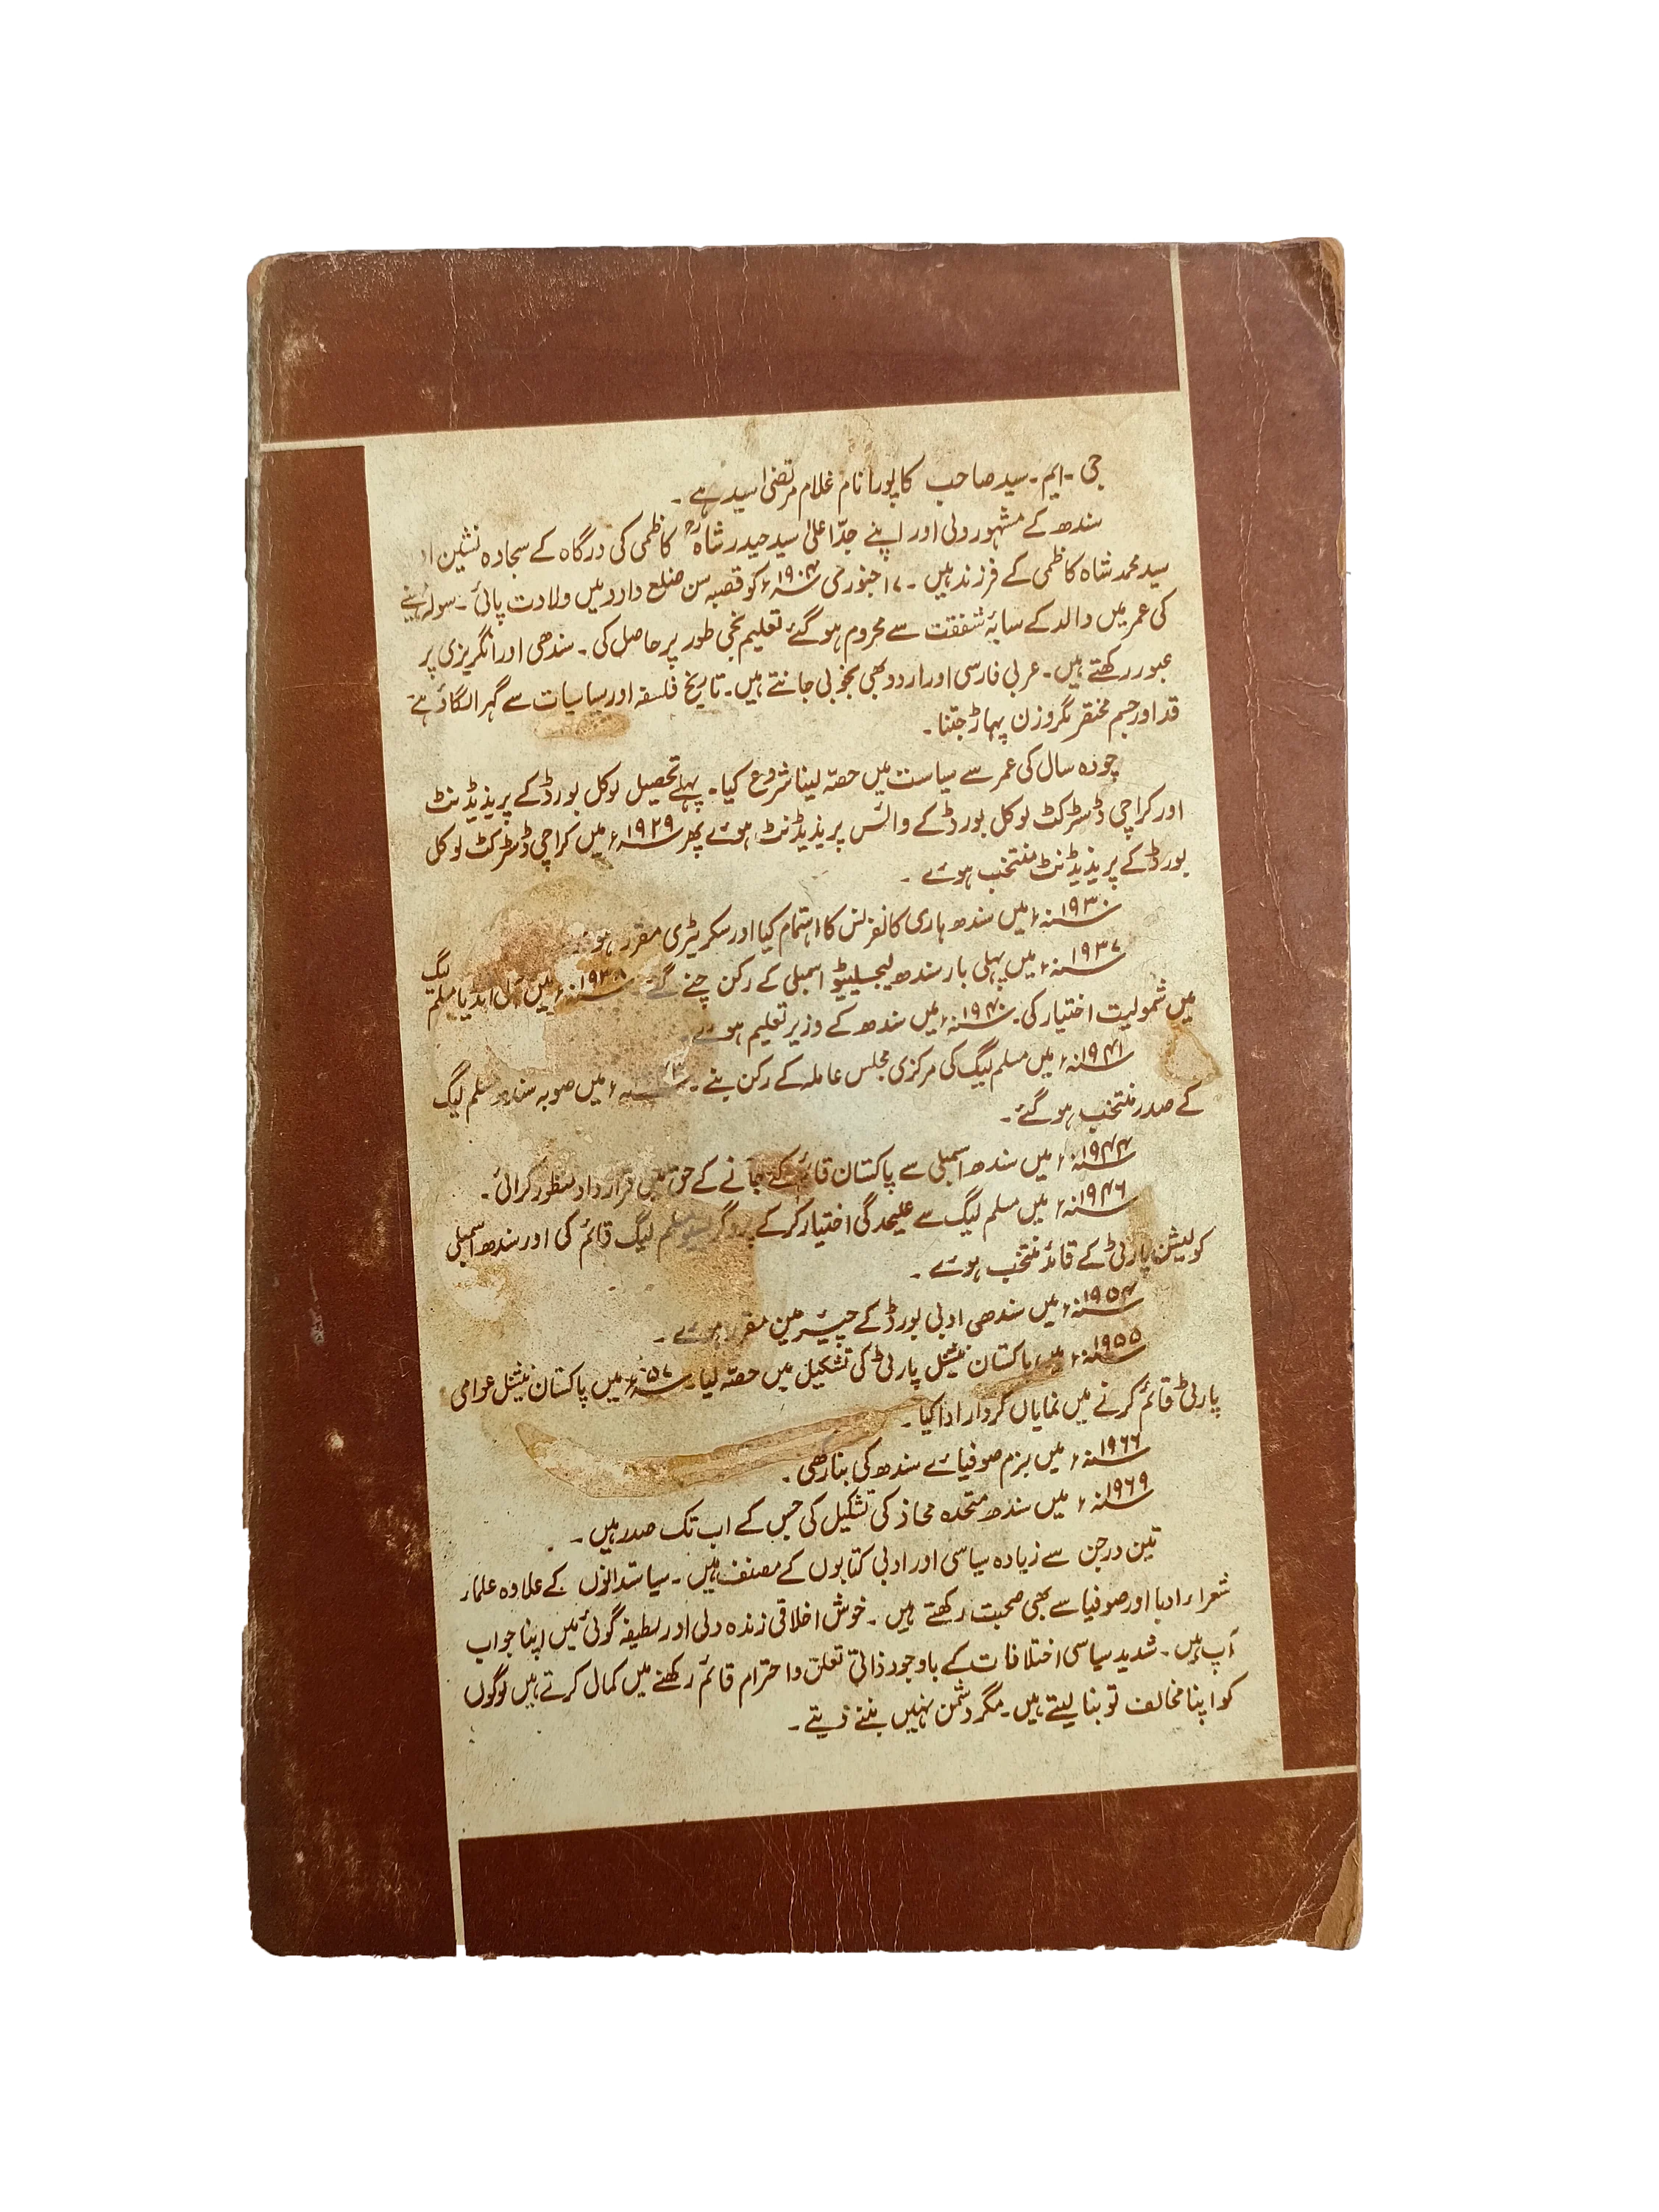 جی۔ایم۔سید صاحب کا پورا نام غلام مرتضیٰ سید ہے۔
سندھ کے مشہور ولی اور اپنے جدّاعلیٰ سید حیدر شاہؒ کاظمی کی درگاہ کے سجادہ نشین
سید محمد شاہ کاظمی کے فرزند ہیں۔ ۱۷ جنوری ۱۹۰۴ء کو قصبہ سن ضلع دادو میں ولادت پائی۔ سولہ مہینے
کی عمر میں والد کے سایۂ شفقت سے محروم ہو گئے تعلیم نجی طور پر حاصل کی۔ سندھی اور انگریزی پر
عبور رکھتے ہیں۔ عربی فارسی اور اردو بھی بخوبی جانتے ہیں۔ تاریخ فلسفہ اور سیاسیات سے گہرا لگاؤ ہے
قد اور جسم مختصر مگر وزن پہاڑ جتنا۔
چودہ سال کی عمر سے سیاست میں حصّہ لینا شروع کیا۔ پہلے تحصیل لوکل بورڈ کے پریذیڈنٹ
اور کراچی ڈسٹرکٹ لوکل بورڈ کے وائس پریذیڈنٹ ہوئے پھر ۱۹۲۹ء میں کراچی ڈسٹرکٹ لوکل
بورڈ کے پریذیڈنٹ منتخب ہوئے۔
۱۹۳۰ء میں سندھ ہاری کانفرنس کا اہتمام کیا اور سکریٹری مقرر
۱۹۳۷ء میں پہلی بار سندھ لیجسلیٹیو اسمبلی کے رکن چنے گئے۔ ۱۹۳۸ء میں آل انڈیا مسلم لیگ
میں شمولیت اختیار کی۔ ۱۹۴۰ء میں سندھ کے وزیر تعلیم ہوئے۔
۱۹۴۱ء میں مسلم لیگ کی مرکزی مجلس عاملہ کے رکن بنے۔ میں صوبہ سندھ مسلم لیگ
کے صدر منتخب ہو گئے۔
۱۹۴۴ء میں سندھ اسمبلی سے پاکستان قائم کئے جانے کے حق میں قرارداد منظور کرائی۔
۱۹۴۶ء میں مسلم لیگ سے علیحدگی اختیار کر کے پروگریسو مسلم لیگ قائم کی اور سندھ اسمبلی
کولیشن پارٹی کے قائد منتخب ہوئے۔
۱۹۵۴ء میں سندھی ادبی بورڈ کے چیئرمین مقرر ہوئے۔
۱۹۵۵ء میں پاکستان نیشنل پارٹی کی تشکیل میں حصّہ لیا۔ ۵۷ء میں پاکستان نیشنل عوامی
پارٹی قائم کرنے میں نمایاں کردار ادا کیا۔
۱۹۶۶ء میں بزم صوفیائے سندھ کی بنا رکھی۔
۱۹۶۹ء میں سندھ متحدہ محاذ کی تشکیل کی جس کے اب تک صدر ہیں۔
تین درجن سے زیادہ سیاسی اور ادبی کتابوں کے مصنف ہیں۔ سیاستدانوں کے علاوہ علماء
شعراء ادبا اور صوفیا سے بھی صحبت رکھتے ہیں۔ خوش اخلاقی زندہ دلی اور لطیفہ گوئی میں اپنا جواب
آپ ہیں۔ شدید سیاسی اختلافات کے باوجود ذاتی تعلق و احترام قائم رکھنے میں کمال کرتے ہیں لوگوں
کو اپنا مخالف تو بنا لیتے ہیں۔ مگر دشمن نہیں بننے دیتے۔